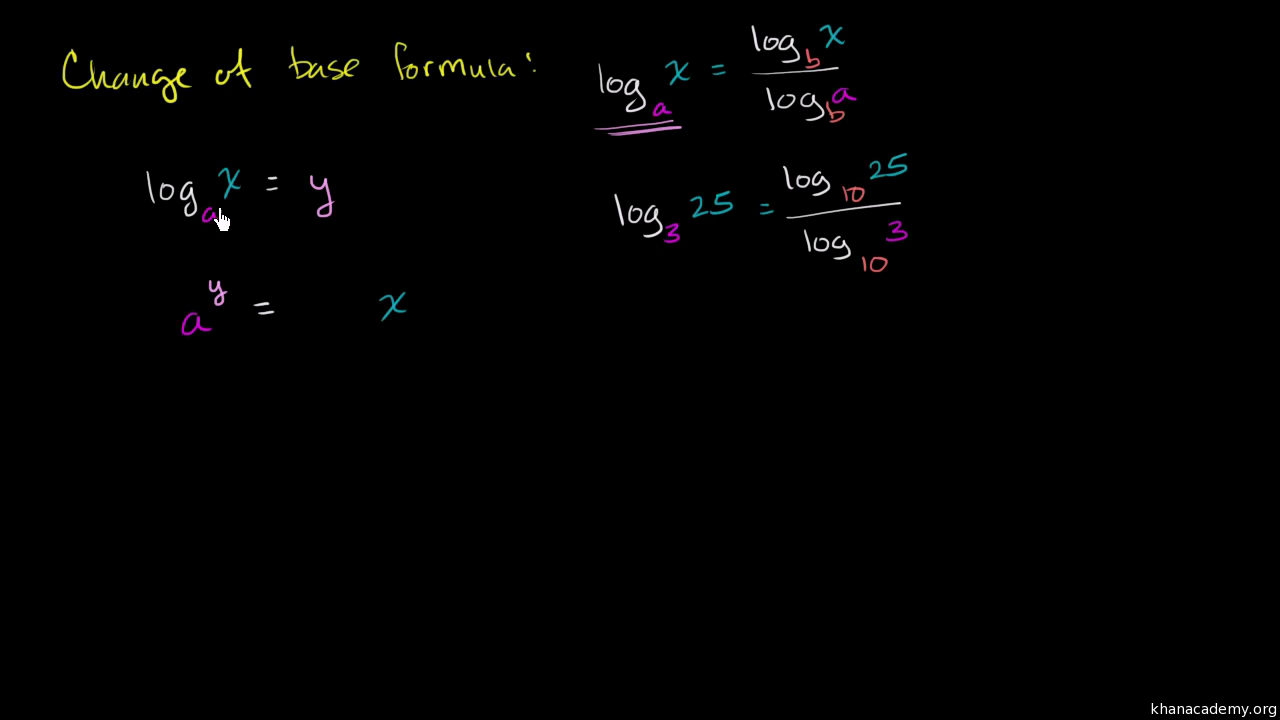 Change of base formula: logₐ x = log_b x / log_b a
logₐ x = y
log₃ 25 = log₁₀ 25 / log₁₀ 3
a^y = x
khanacademy.org